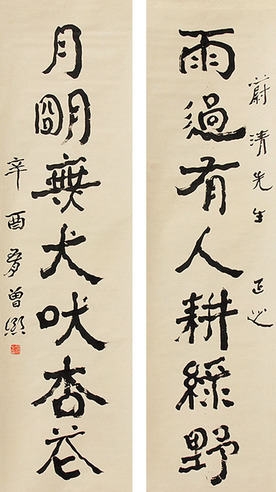 雨過有人耕綠野
蔚清先生正之
月明無犬吠杏花
辛酉夏曾熙